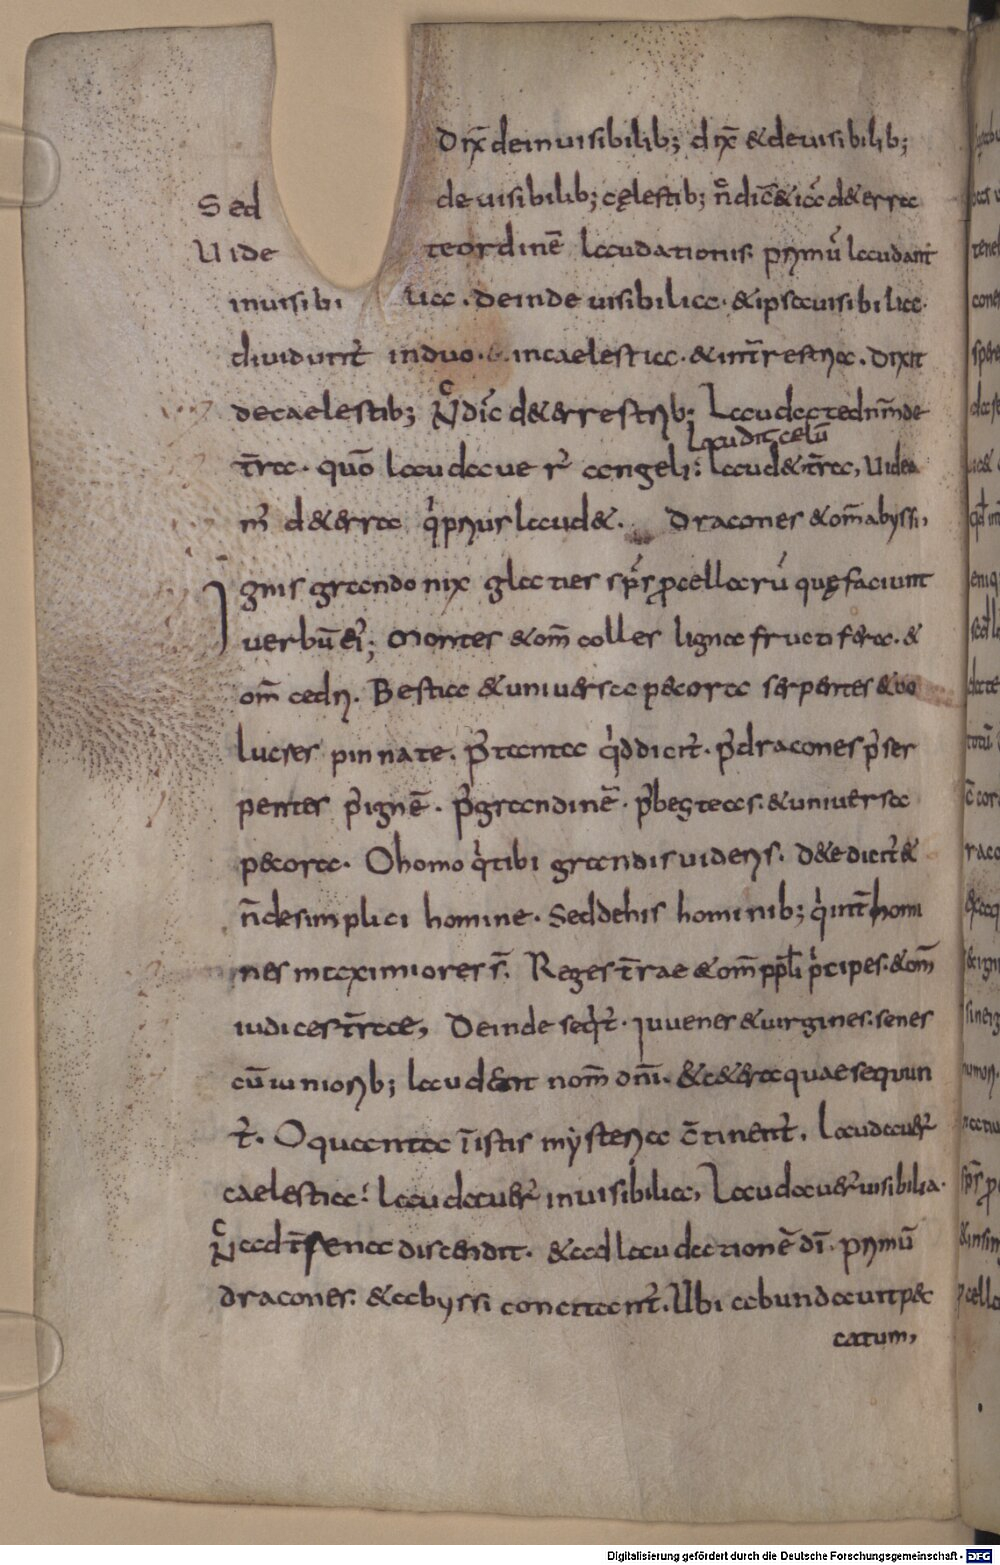 Dixͨ deinuisibilib; dixͨ &deuisibilib;
Sed deuisibilib; cęlestib; n̄ dic̄ & ic̄ d& erra
Uide te ordinē laudationis. primū laudant
inuisibi lia. deinde uisibilia. & ipsa uisibilia.
diuidunt̄ induo. incaelestia. & int̄restria. Dixit
decaelestib; N̄c dic̄ d& errestrib; Laudate dn̄m de
t̄ra. quō laudauer̄ angeli: laud& t̄ra, Uidea
Laudat celū
m̄ d& erra qͥ prius laud&. Dracones & om̄ abyssi,
Ignis grando nix glacies sps̄ ꝓcellarū quę faciunt
uerbū ei'; Montes & om̄ colles ligna fructifera. &
om̄ cedri. Bestiae & uniuersa pecora serpentes & uo
lucres pinnate. P̄ tanta qͥd dicit̄. p̄ dracones p̄ ser
pentes p̄ ignē. p̄ grandinē. p̄ bestias. & uniuersa
pecora. O homo qͥ tibi grandis uideris. D& e dicit̄ &
n̄ desimplici homine. Sed dehis hominib; qͥ int̄ homi
nes maximiores s̄. Reges t̄rae & om̄ pp̄li pͥcipes. & om̄
iudices t̄rae, Deinde seqͥt̄. iuuenes & uirgines. senes
cū iuniorib; laudent nom̄ dn̄i. & c&era quae sequun
t̄. O quanta ī istis mysteria c̄tinent̄. Laudauer̄
caelestia: laudauer̄ inuisibilia, Laudauer̄ uisibilia.
N̄c ad t̄rena discendit. & ad laudationē dī. primū
dracones. & abyssi concitant̄. Ubi abundauit pec
catum,
Digitalisierung gefördert durch die Deutsche Forschungsgemeinschaft - DFG